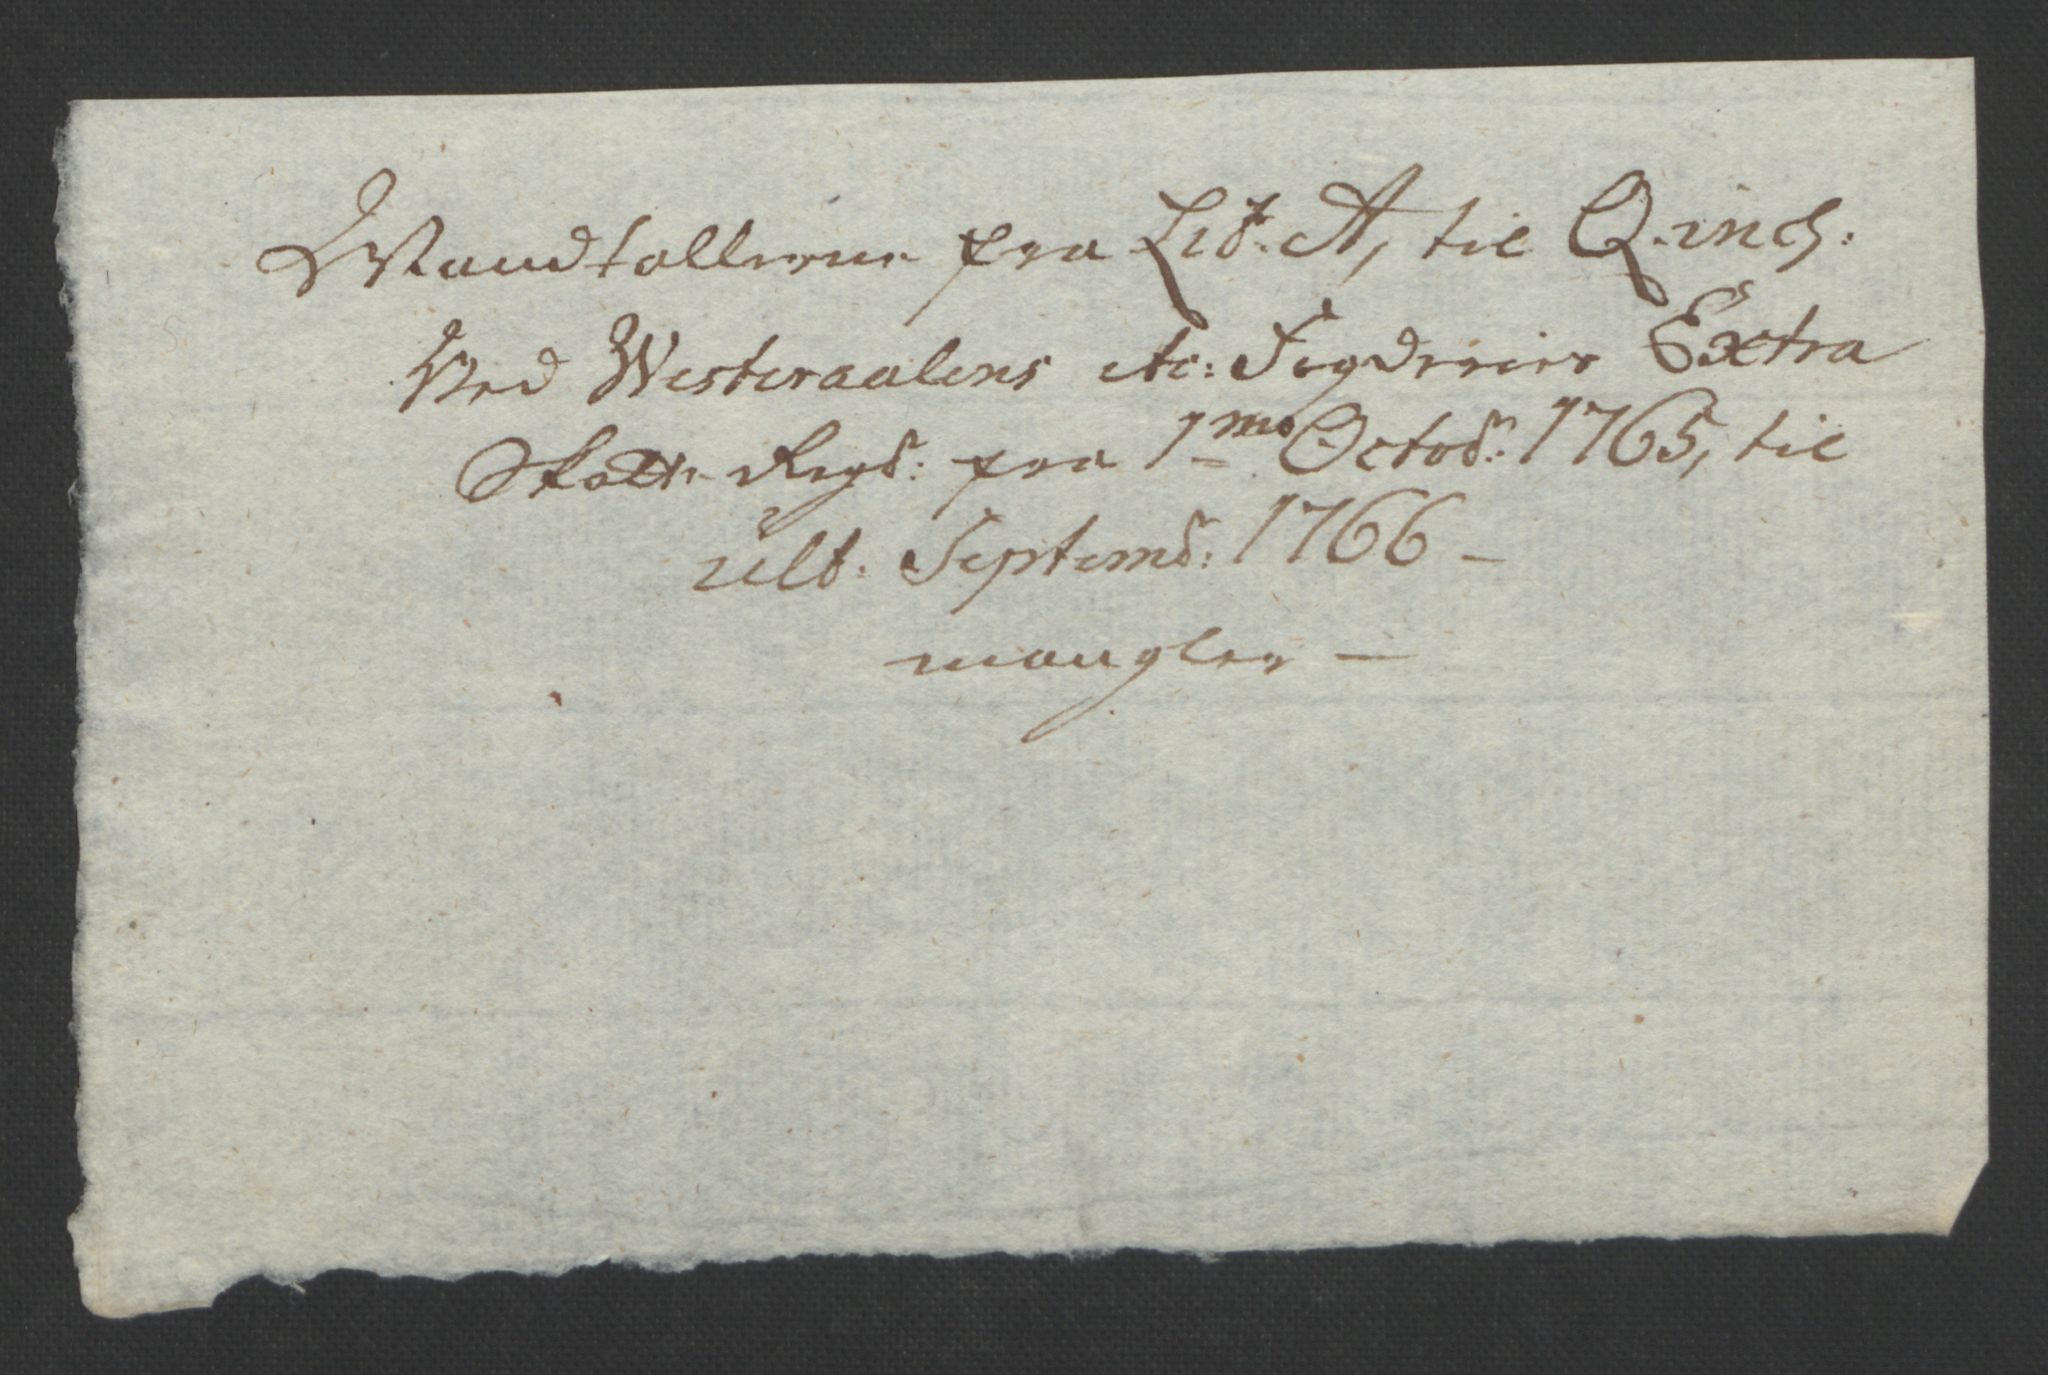 Mandtallerne fra Litr: A, til Q. incl:
Ved Westeraalens etc: Fogderier Extra
Skatte Regnsk: fra 1mo Octobr: 1765, til
ult. Septembr: 1766 -
mangler -